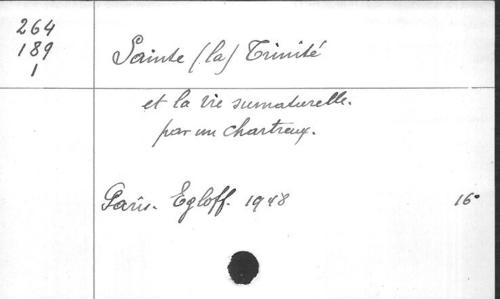 264
189
1
Sainte (la) Trinité
et la vie surnaturelle.
par un chartreux.
Paris. Egloff. 1948 16°